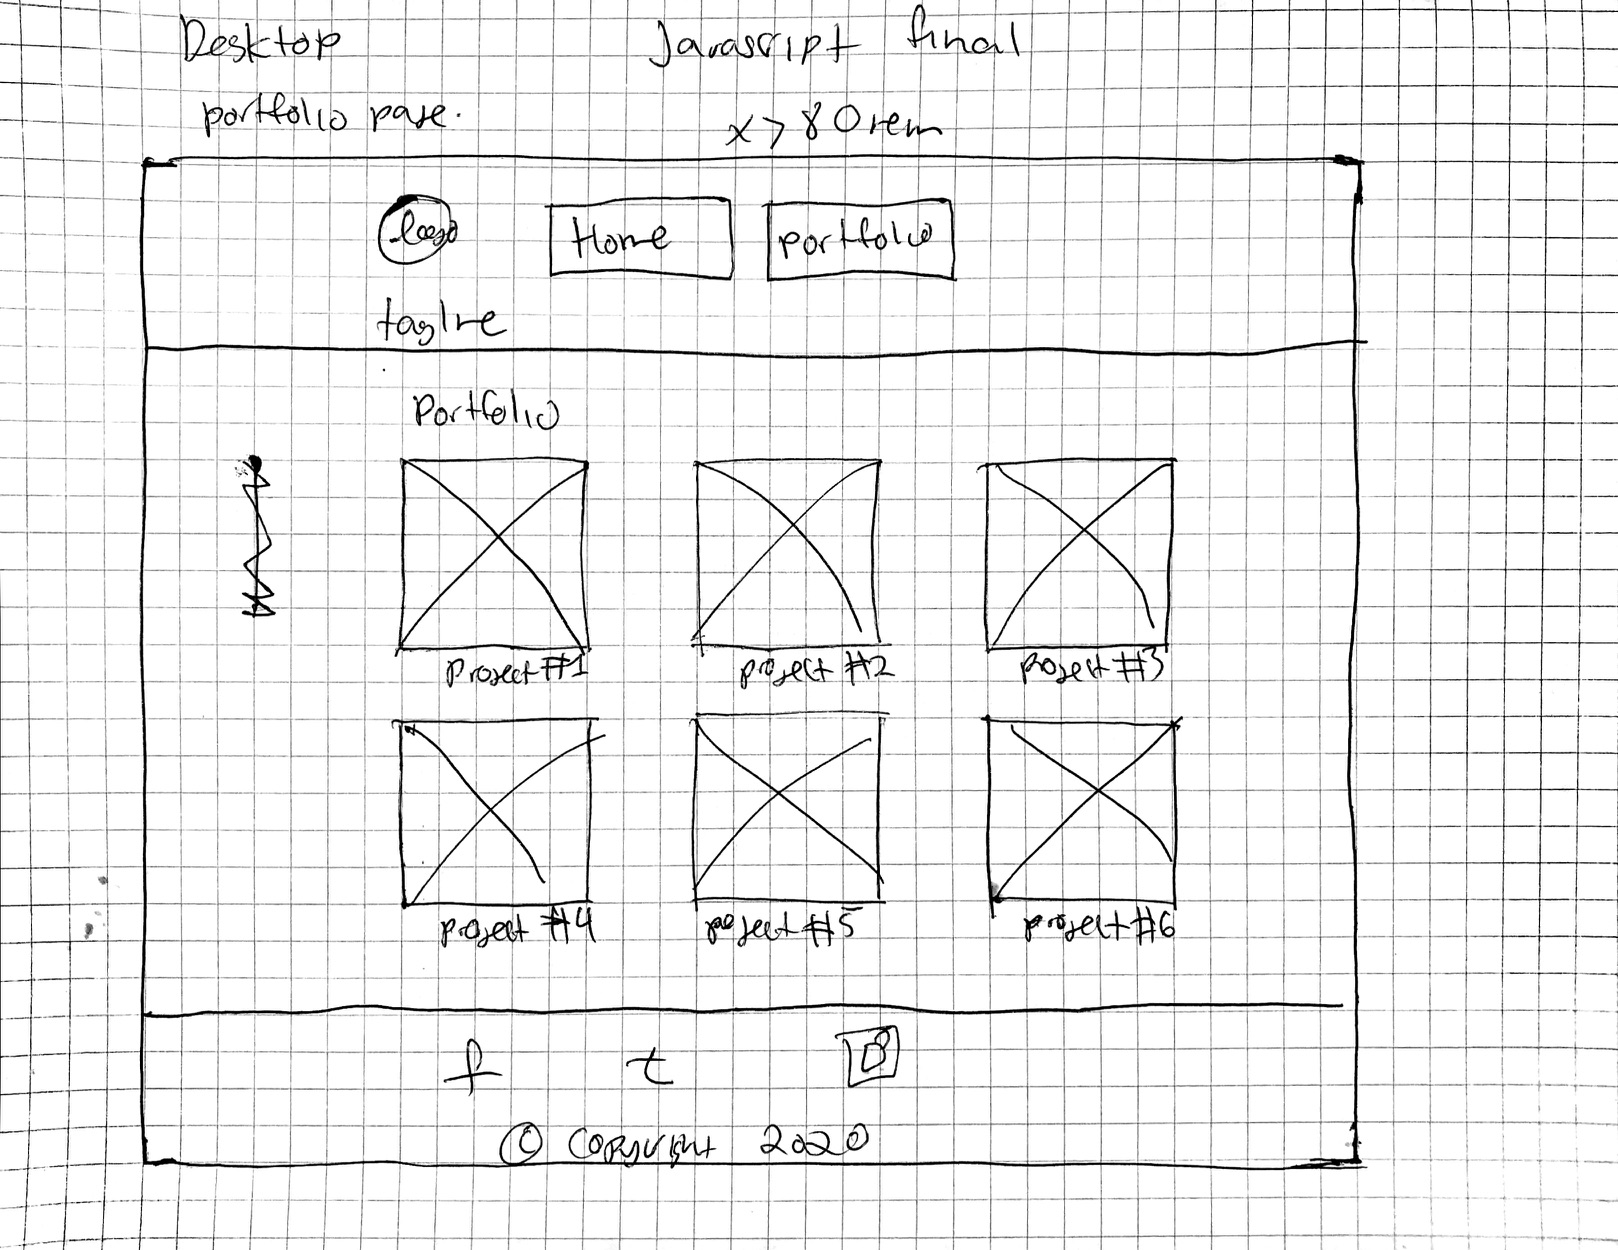 Desktop Javascript final
portfolio page.
x > 80rem
logo Home portfolio
tagline
Portfolio
project #1 project #2 project #3
project #4 project #5 project #6
f t
© Copyright 2020